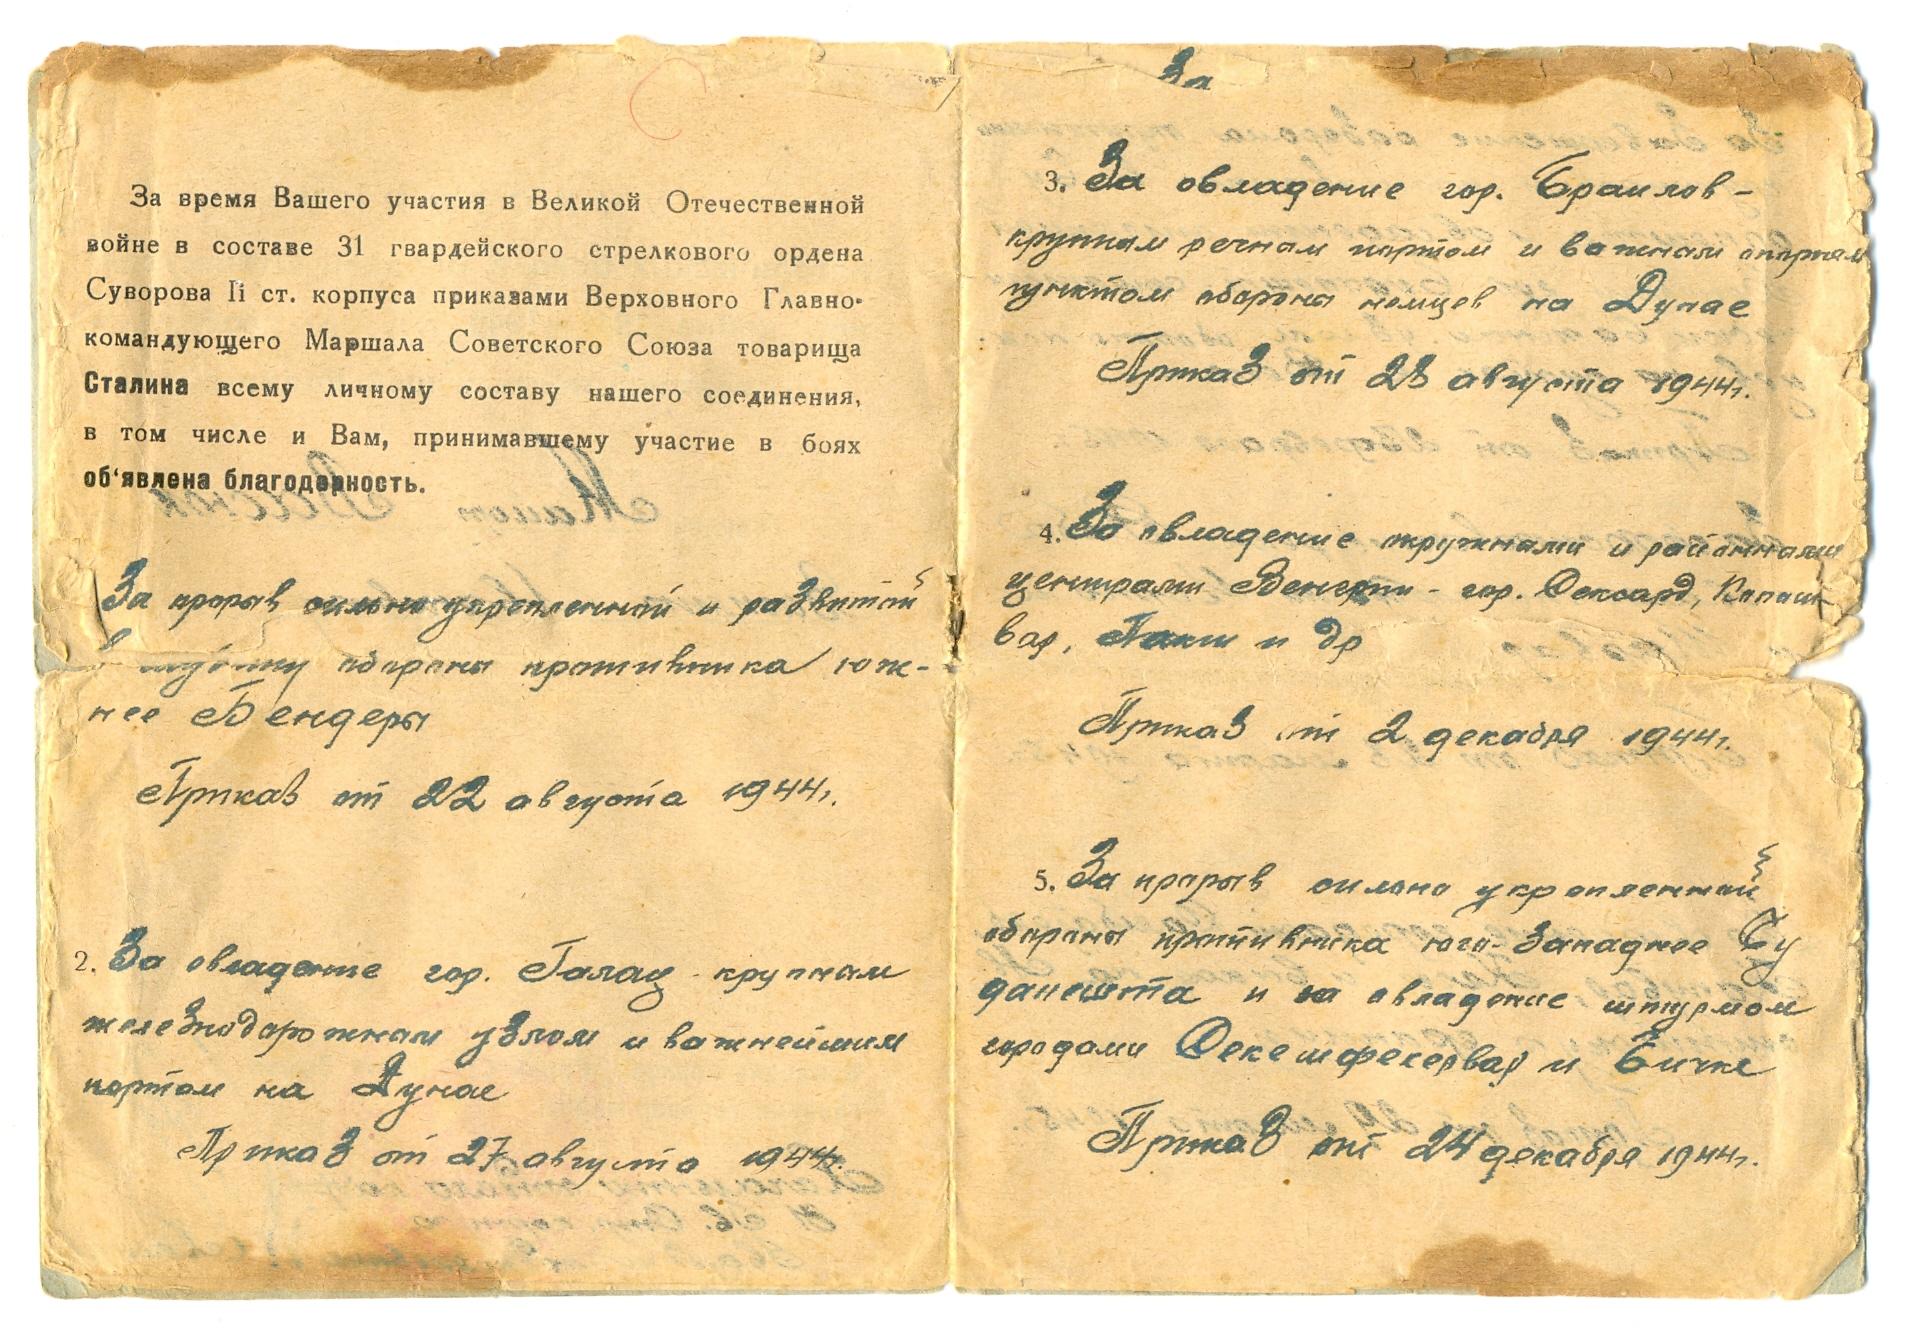 За время Вашего участия в Великой Отечественной
войне в составе 31 гвардейского стрелкового ордена
Суворова II ст. корпуса приказами Верховного Главно-
командующего Маршала Советского Союза товарища
Сталина всему личному составу нашего соединения,
в том числе и Вам, принимавшему участие в боях
об‘явлена благодарность.
За прорыв сильно укрепленной и развитой
в глубину обороны противника юж-
нее Бендеры
Приказ от 22 августа 1944г.
2. За овладение гор. Галац - крупным
железнодорожным узлом и важнейшим
портом на Дунае
Приказ от 27 августа 1944г.
За
3. За овладение гор. Браилов -
крупным речным портом и важным опорным
пунктом обороны немцев на Дунае
Приказ от 28 августа 1944г.
4. За овладение окружными и районными
центрами Венгрии - гор. Сексард, Капош-
вар, Пакш и др
Приказ от 2 декабря 1944г.
5. За прорыв сильно укрепленной
обороны противника юго-западнее Бу
дапешта и за овладение штурмом
городами Секешфехервар и Бичке
Приказ от 24 декабря 1944г.